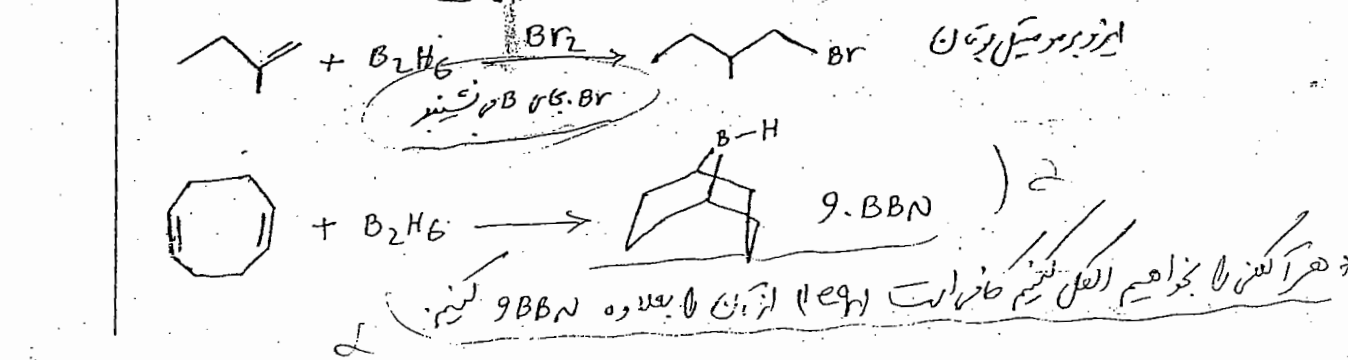 + B2H6 Br2 Br ایزوبرمو متیل بوتان
Br بجای B می نشیند
B-H
+ B2H6 9.BBN
هر آلکنی را بخواهیم الکل کنیم کافی است (1eq) از آن را بعلاوه 9BBN کنیم.